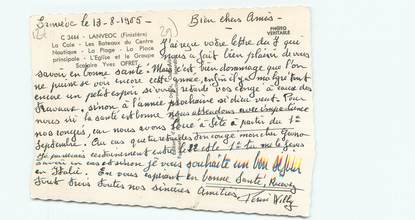 Lanvéoc le 13-8-1965
Bien chers Amis -
C 3464 - LANVEOC (Finistère)
La Cale - Les Bateaux du Centre
Nautique - La Plage - La Place
principale - L'Eglise et le Groupe
Scolaire Yves OFRET
PHOTO
VERITABLE
J'ai reçu votre lettre du 7 qui
nous a fait bien plaisir de vous
savoir en bonne santé. Mais c'est bien dommage que l'on
ne puisse se voir encore cette année, enfin il y a malgré tout
encore un petit espoir si vous retardez vos congé à cause des
travaux, sinon à l'année prochaine si Dieu veut. Pour
nous ici la santé est bonne nous attendons avec impatience
nos congés, car nous avons loué à Sète à partir du 1er
Septembre. Au cas que tu
entre le 22 et le 1er tu me le feras
savoir en cas sinon je vous souhaite un bon séjour
en Italie. En vous espérant en bonne Santé, Recevez
tous nos sincères Amitiés
Willy